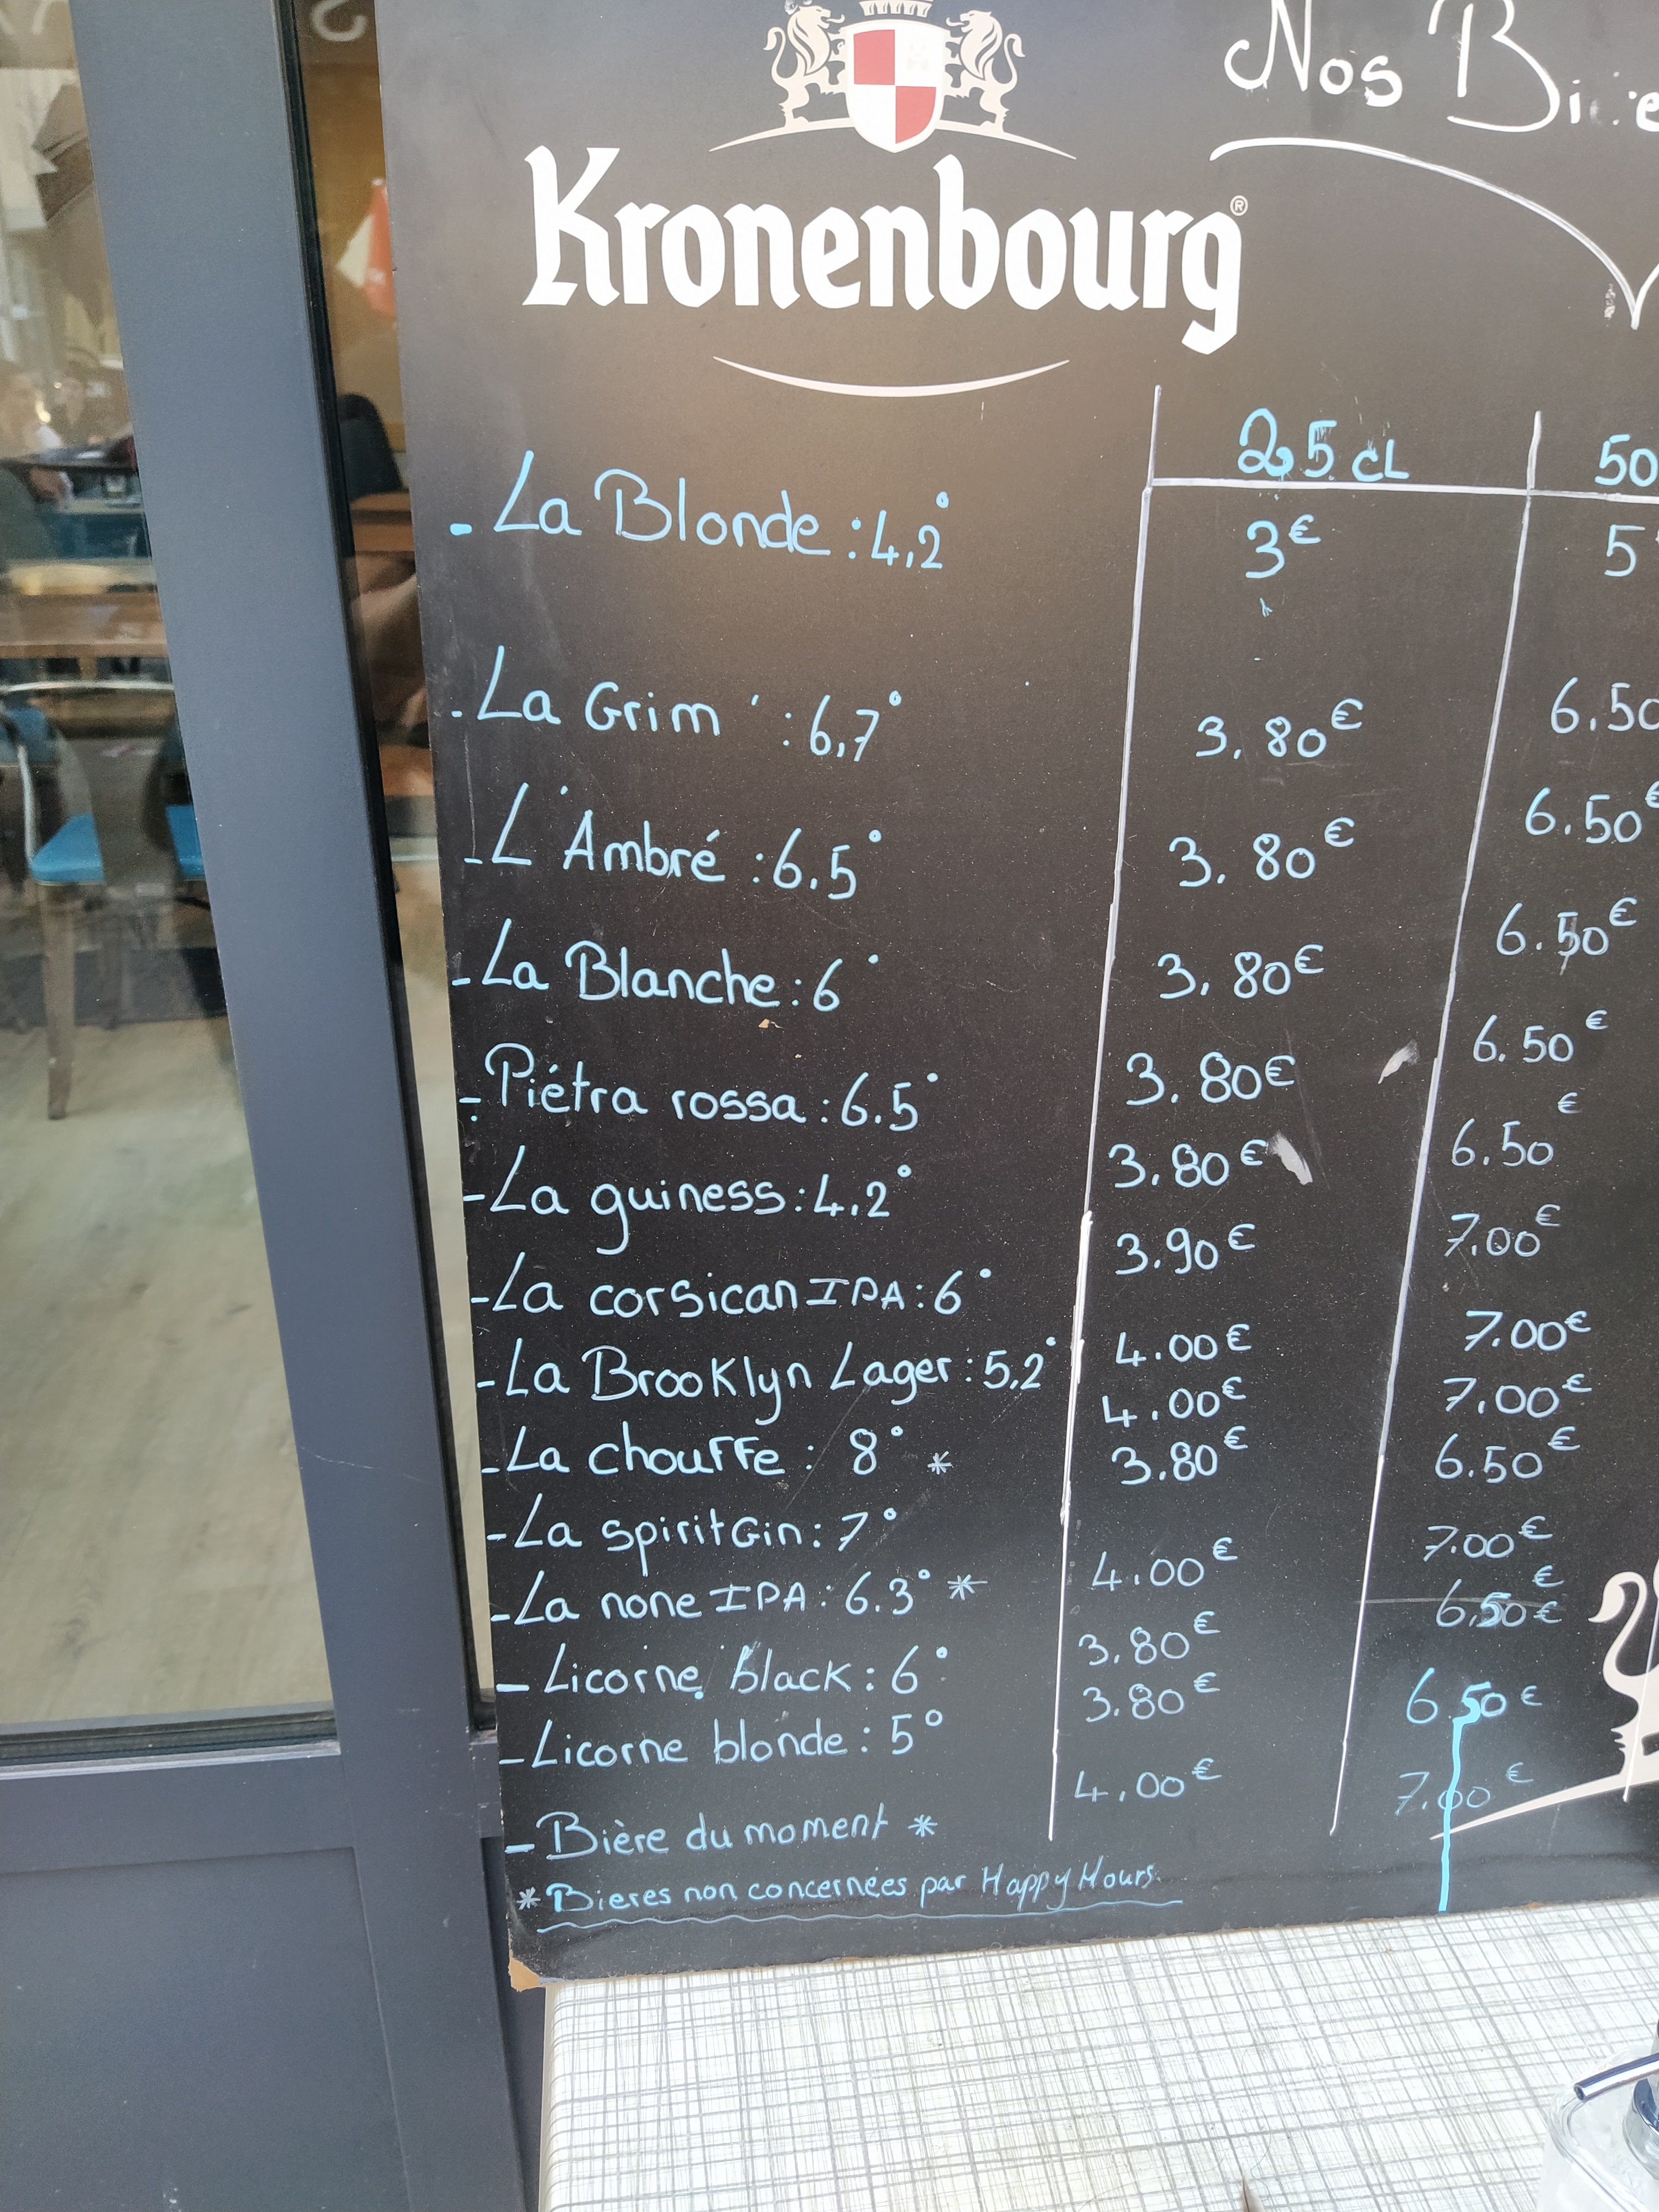 Nos Biè
Kronenbourg®
25 cL 50
- La Blonde : 4,2° 3€ 5
- La Grim' : 6,7° 3.80€ 6.50
- L'Ambré : 6.5° 3.80€ 6.50€
- La Blanche : 6° 3.80€ 6.50€
- Piétra rossa : 6.5° 3.80€ 6.50€
- La guiness : 4.2° 3.80€ 6.50€
- La corsican IPA : 6° 3.90€ 7.00€
- La Brooklyn Lager : 5,2° 4.00€ 7.00€
- La chouffe : 8° * 4.00€ 7.00€
- La spirit Gin : 7° 3.80€ 6.50€
- La none IPA : 6.3° * 4.00€ 7.00€
- Licorne black : 6° 3.80€ 6.50€
- Licorne blonde : 5° 3.80€ 6.50€
- Bière du moment * 4.00€ 7.00€
* Bieres non concernées par Happy Hours.